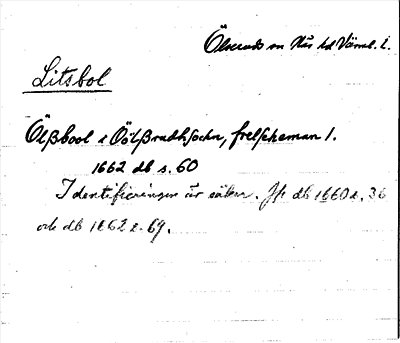 Ölseruds sn Näs hd Värml. l.
Litsbol
Ölßbool i Öölßrudhsochn, frelssheman 1.
1662 db s. 60
Identifieringen är säker. Jfr db 1660 s. 36
och db 1662 s. 69.